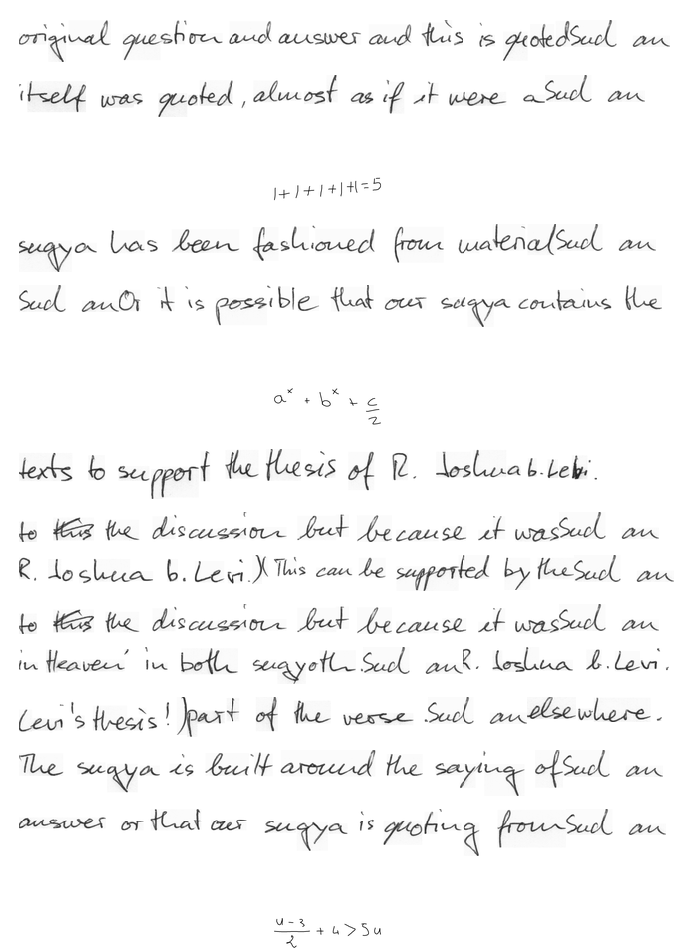 original question and answer and this is quotedSud an
itself was quoted, almost as if it were aSud an
1+1+1+1+1=5
sugya has been fashioned from materialSud an
Sud anOr it is possible that our sugya contains the
a^x + b^x + c/2
texts to support the thesis of R. Joshua b. Levi.
to this the discussion but because it wasSud an
R. Joshua b. Levi.)( This can be supported by theSud an
to this the discussion but because it wasSud an
in Heaven' in both sugyoth.Sud anR. Joshua b. Levi.
Levi's thesis!)part of the verse.Sud anelsewhere.
The sugya is built around the saying ofSud an
answer or that our sugya is quoting fromSud an
(u-3)/2 + 4 > 5u